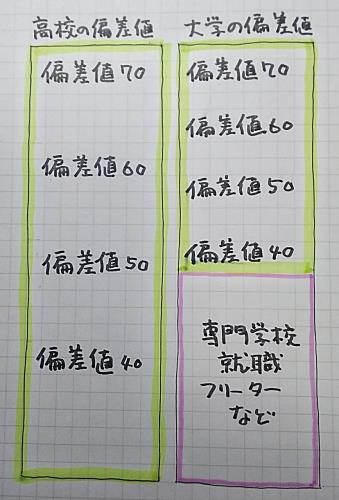 高校の偏差値
偏差値70
偏差値60
偏差値50
偏差値40
大学の偏差値
偏差値70
偏差値60
偏差値50
偏差値40
専門学校
就職
フリーター
など